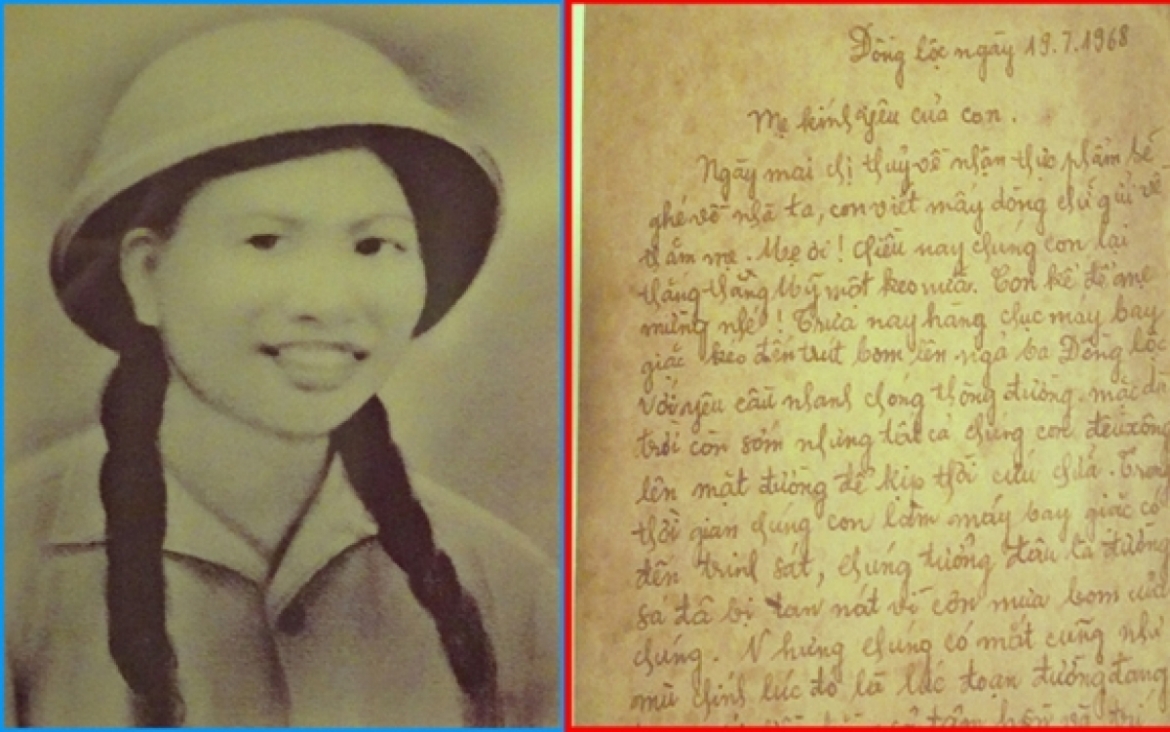 Đồng lộc ngày 19.7.1968
Mẹ kính yêu của con.
Ngày mai chị thuý về nhận thực phẩm sẽ
ghé về nhà ta, con viết mấy dòng chữ gửi về
thăm mẹ. Mẹ ơi! Chiều nay chúng con lại
thắng thằng Mỹ một keo nữa. Con kể để mẹ
mừng nhé! Trưa nay hàng chục máy bay
giặc kéo đến trút bom lên ngã ba Đồng lộc
Với yêu cầu nhanh chóng thông đường, mặc dù
trời còn sớm nhưng tất cả chúng con đều xông
lên mặt đường để kịp thời cứu chữa. Trong
thời gian chúng con làm máy bay giặc có
đến trinh sát, chúng tưởng đâu là đường
sá đã bị tan nát vì cơn mưa bom của
chúng. Nhưng chúng có mắt cũng như
mù chính lúc đó là lúc đoạn đường đang